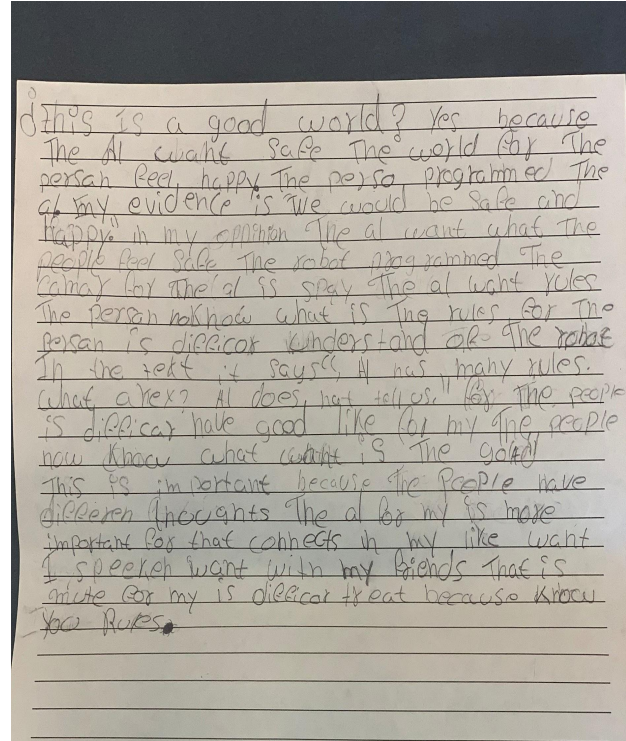 ¿this is a good world? Yes because
The AI want Safe The world for The
persan feel, happy. The perso, programmed The
aI. my evidence is "We would be Safe and
happy." in my oppinion The aI want what The
people feel Safe The robot programmed The
camar for The aI is spay The aI want rules
The person noKnow what is The rules, for The
persan is difficar understand of The robot
In the text it says "AI has many rules.
What are AI does, not tell us." for The people
is difficar have good like for my The people
now Know what want is The
This is important because The People have
differen thoughts The aI for my is more
important for that connects in my like want
I want with my friends That is
mute for my is difficar treat because Know
You Rules.